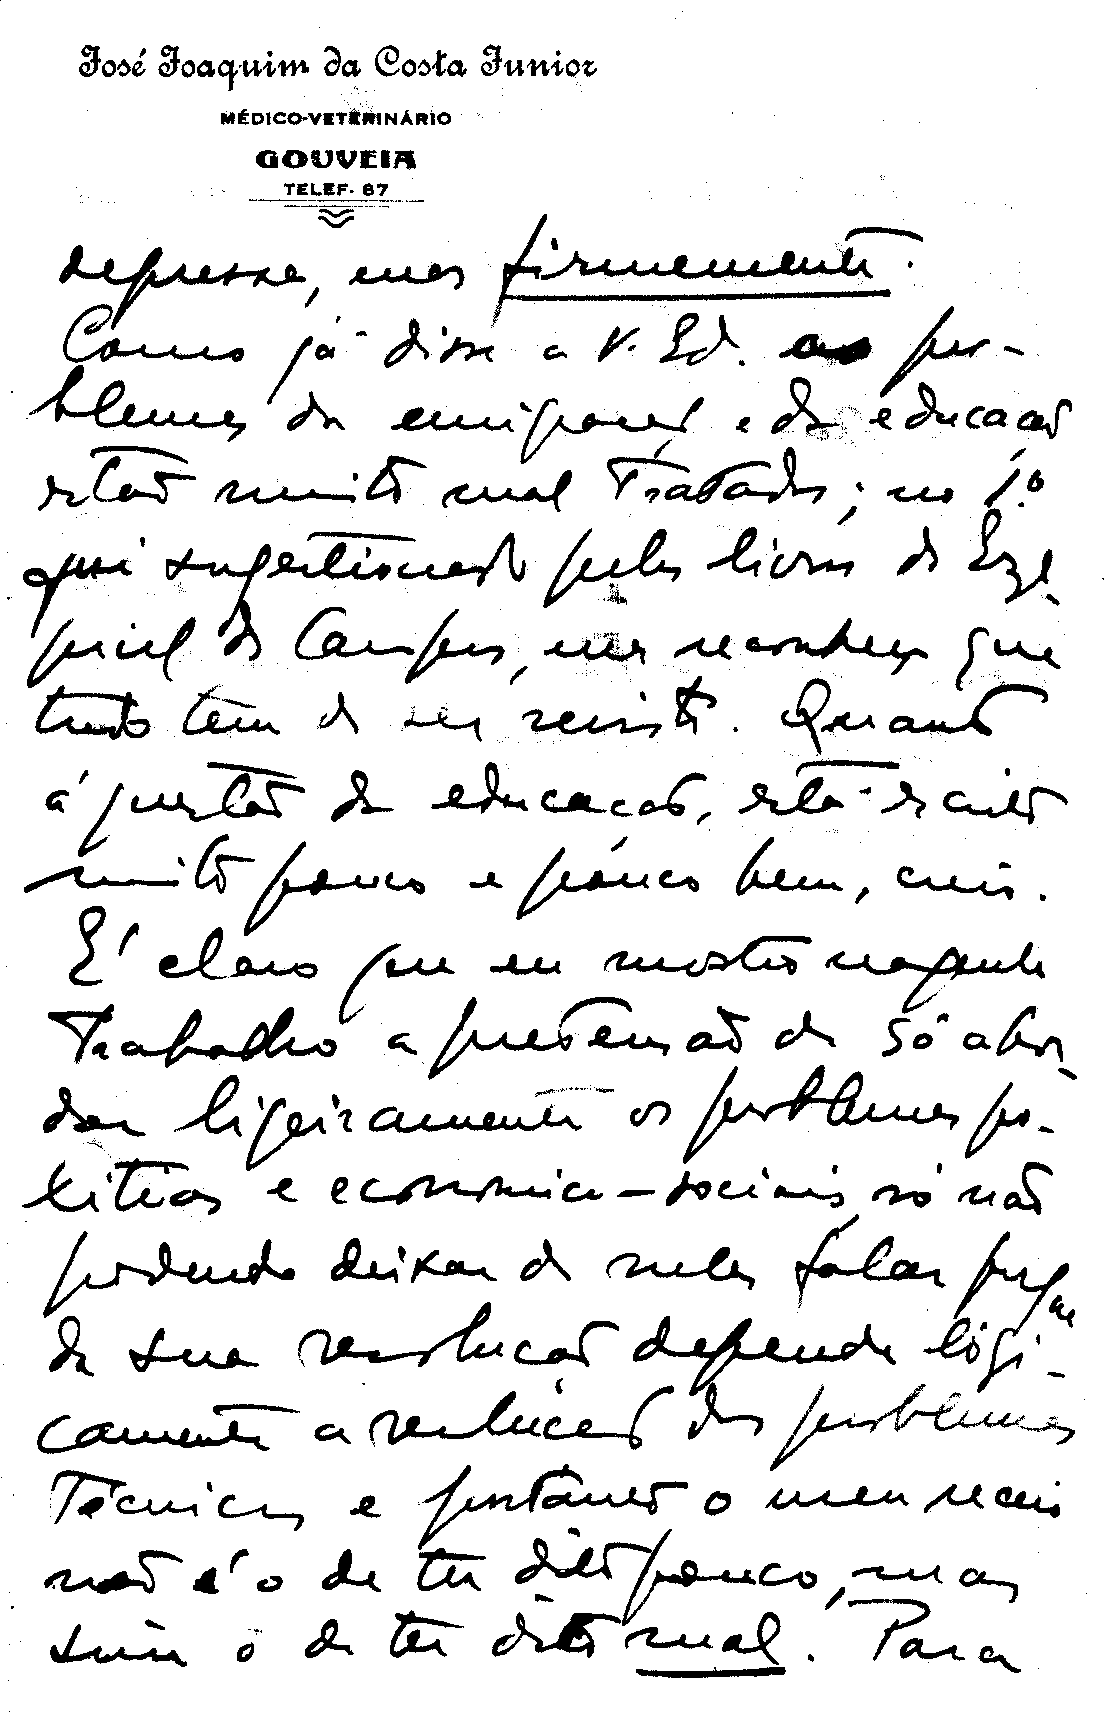 José Joaquim da Costa Junior
MÉDICO-VETERINÁRIO
GOUVEIA
TELEF. 67
depressa, mas firmemente.
Como já disse a V. os pro-
blemas da emigração e da educação
estão muito mal tratados; no 1.º
fui sugestionado pelos livros de Eze-
quiel de Campos, mas reconheço que
tudo tem de ser revisto. Quanto
á questão da educação, está escrito
muito pouco e pouco bem, creio.
É claro que eu mostro naquele
trabalho a pretensão de só abor-
dar ligeiramente os problemas po-
liticos e economico-sociais, só não
podendo deixar de neles falar porque
da sua resolução depende lógi-
camente a resolução dos problemas
técnicos e portanto o meu receio
não é o de ter dito pouco, mas
sim o de ter dito mal. Para